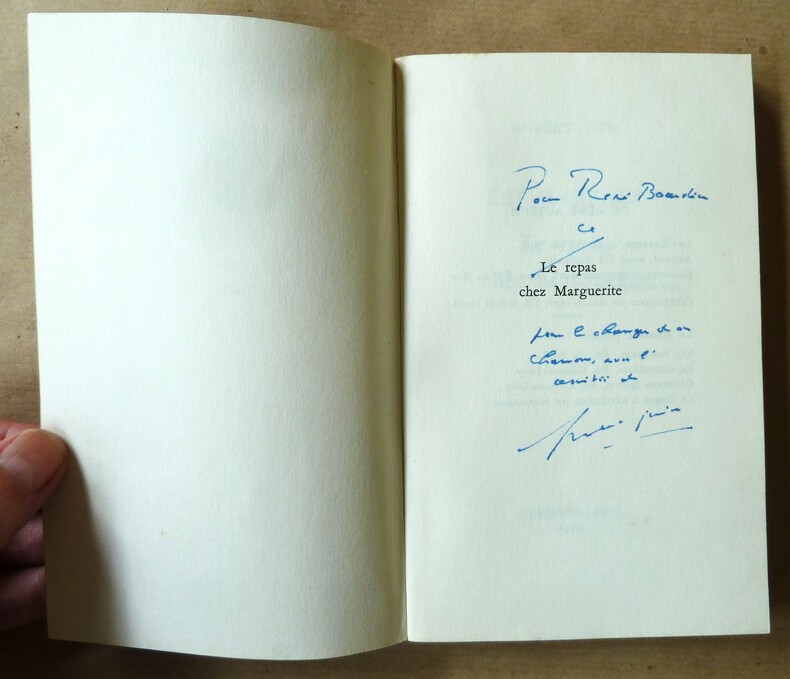 Pour René Bourdier
ce
Le repas
chez Marguerite
pour le changer de
chansons, avec l'
amitié de
Hubert Juin